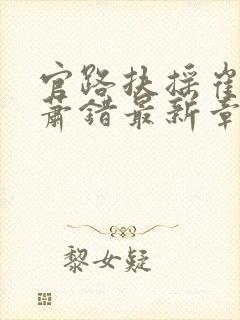 官路扶摇崔
萧错最新章
黎女疑